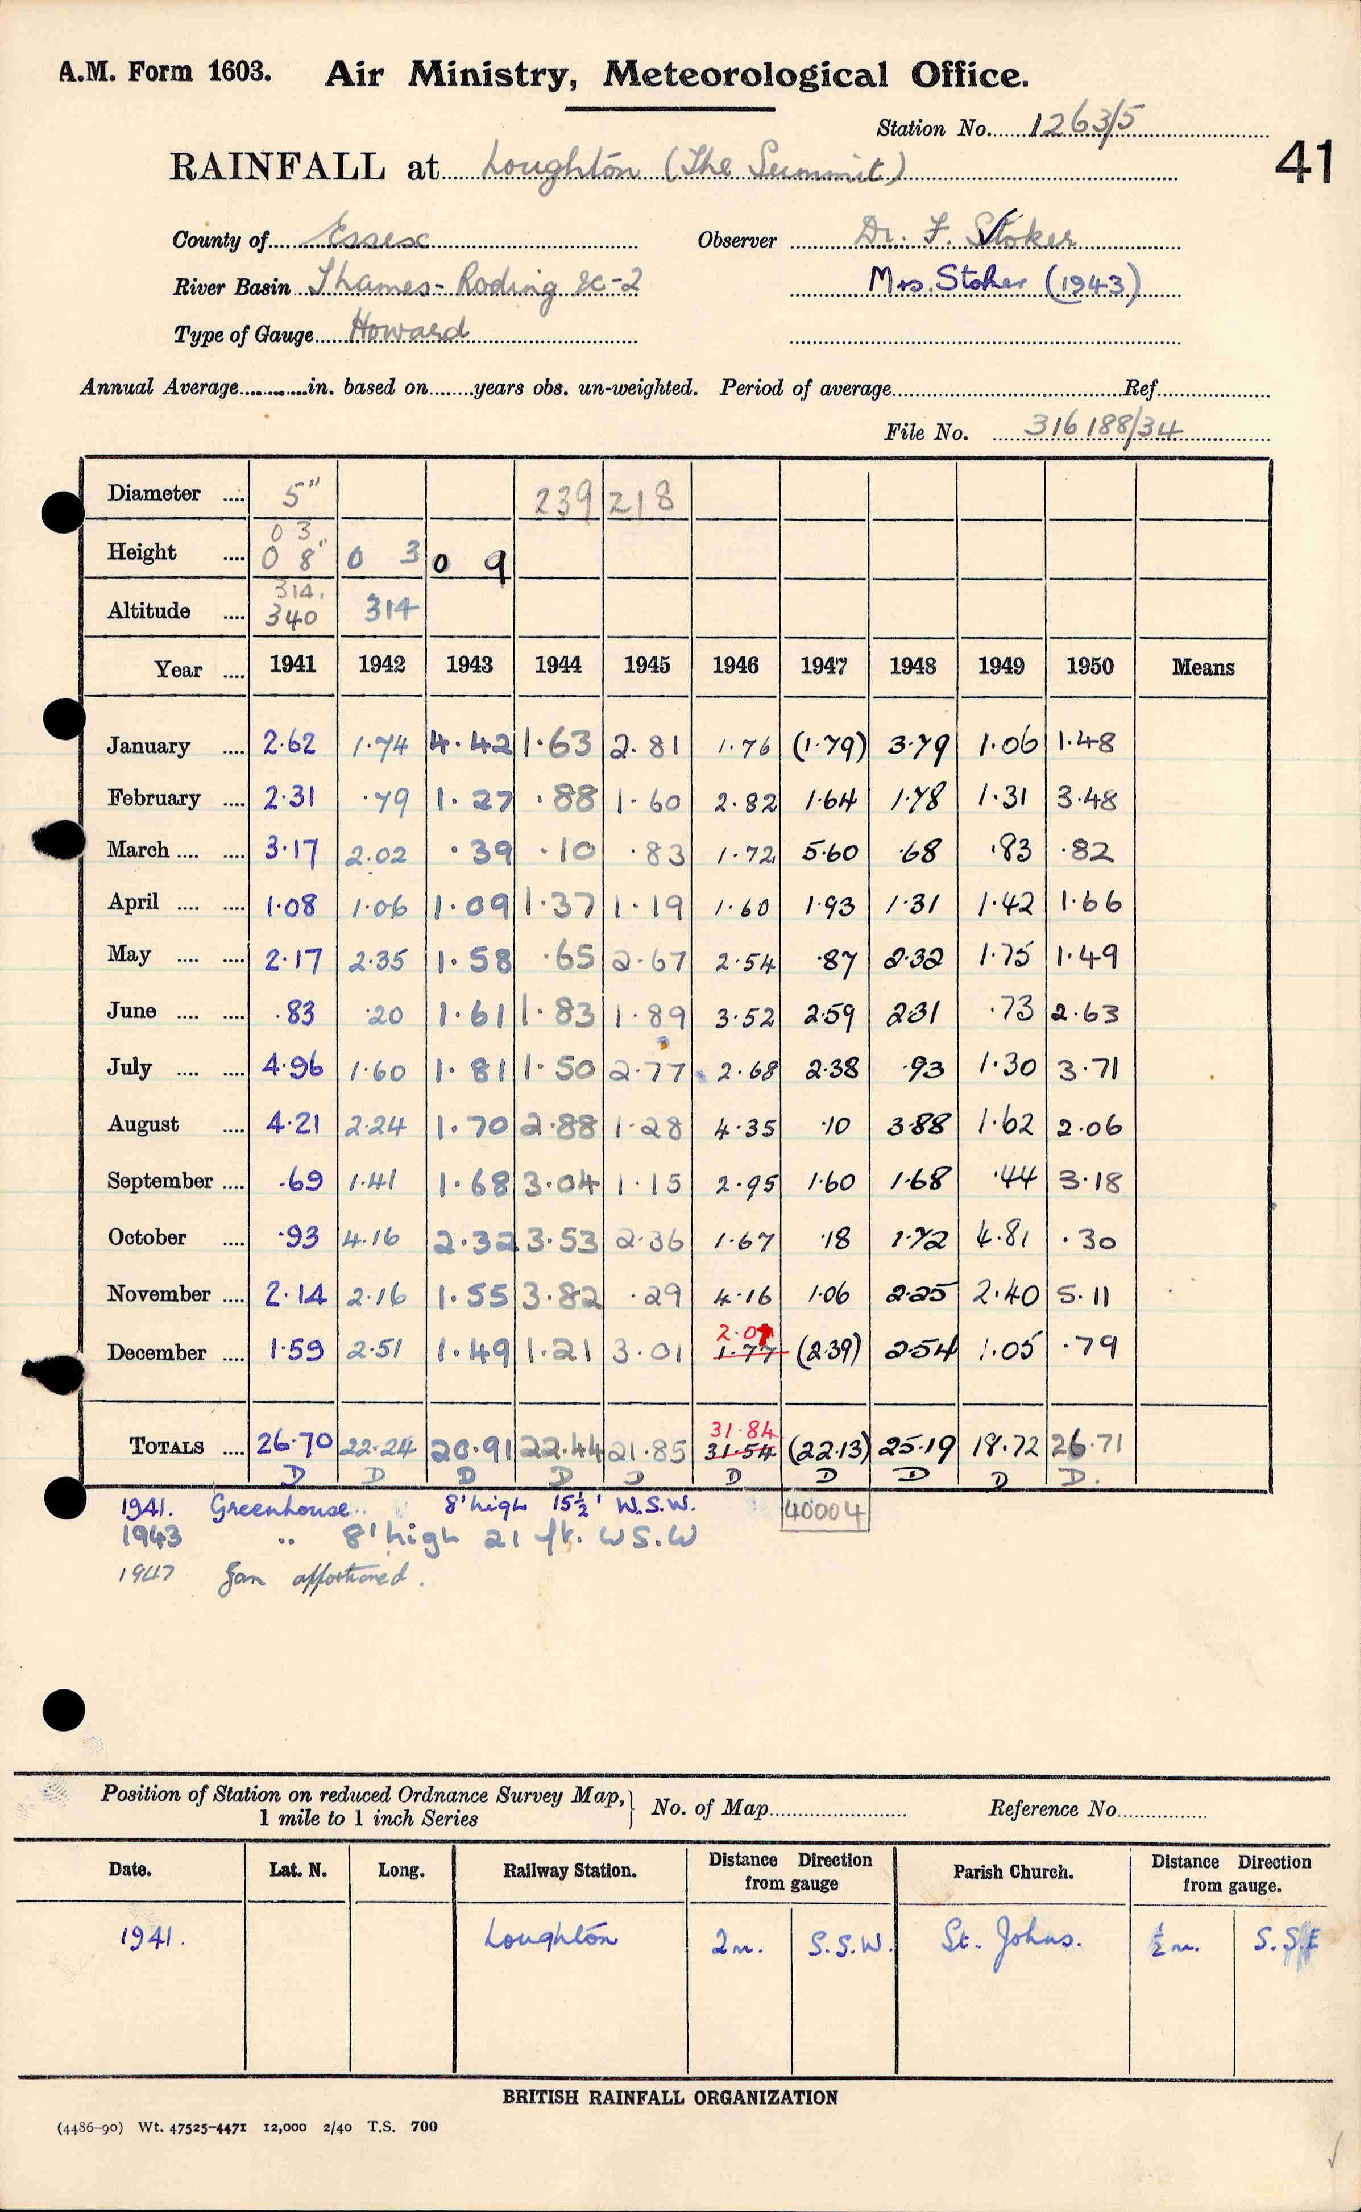 A.M. Form 1603. Air Ministry, Meteorological Office.
Station No. 1263/5
RAINFALL at Loughton (The Summit)
41
County of Essex Observer Dr. F. Stoker
River Basin Thames - Roding &c - 2 Mrs. Stoker (1943)
Type of Gauge Howard
Annual Average in. based on years obs. un-weighted. Period of average Ref
File No. 316188/34
Diameter 5" 239 218
0 3
Height 0 8" 0 3 0 9
314.
Altitude 340 314
Year 1941 1942 1943 1944 1945 1946 1947 1948 1949 1950 Means
January 2.62 1.74 4.42 1.63 2.81 1.76 (1.79) 3.79 1.06 1.48
February 2.31 .79 1.27 .88 1.60 2.82 1.64 1.78 1.31 3.48
March 3.17 2.02 .39 .10 .83 1.72 5.60 .68 .83 .82
April 1.08 1.06 1.09 1.37 1.19 1.60 1.93 1.31 1.42 1.66
May 2.17 2.35 1.58 .65 2.67 2.54 .87 2.32 1.75 1.49
June .83 .20 1.61 1.83 1.89 3.52 2.59 2.31 .73 2.63
July 4.96 1.60 1.81 1.50 2.77 2.68 2.38 .93 1.30 3.71
August 4.21 2.24 1.70 2.88 1.28 4.35 .10 3.88 1.62 2.06
September .69 1.41 1.68 3.04 1.15 2.95 1.60 1.68 .44 3.18
October .93 4.16 2.32 3.53 2.36 1.67 .18 1.72 4.81 .30
November 2.14 2.16 1.55 3.82 .29 4.16 1.06 2.25 2.40 5.11
2.07
December 1.59 2.51 1.49 1.21 3.01 1.77 (2.39) 2.54 1.05 .79
31.84
TOTALS 26.70 22.24 20.91 22.44 21.85 31.54 (22.13) 25.19 18.72 26.71
D D D D D D D D D D.
1941. Greenhouse 8' high 15½' W.S.W. 40004
1943 " 8' high 21 ft. WSW
1947 Jan apportioned.
Position of Station on reduced Ordnance Survey Map, 1 mile to 1 inch Series No. of Map Reference No.
Date. Lat. N. Long. Railway Station. Distance Direction from gauge Parish Church. Distance Direction from gauge.
1941. Loughton 2m. S.S.W. St. Johns. ½ m. S.S.E
BRITISH RAINFALL ORGANIZATION
(4486-90) Wt. 47525-4471 12,000 2/40 T.S. 700